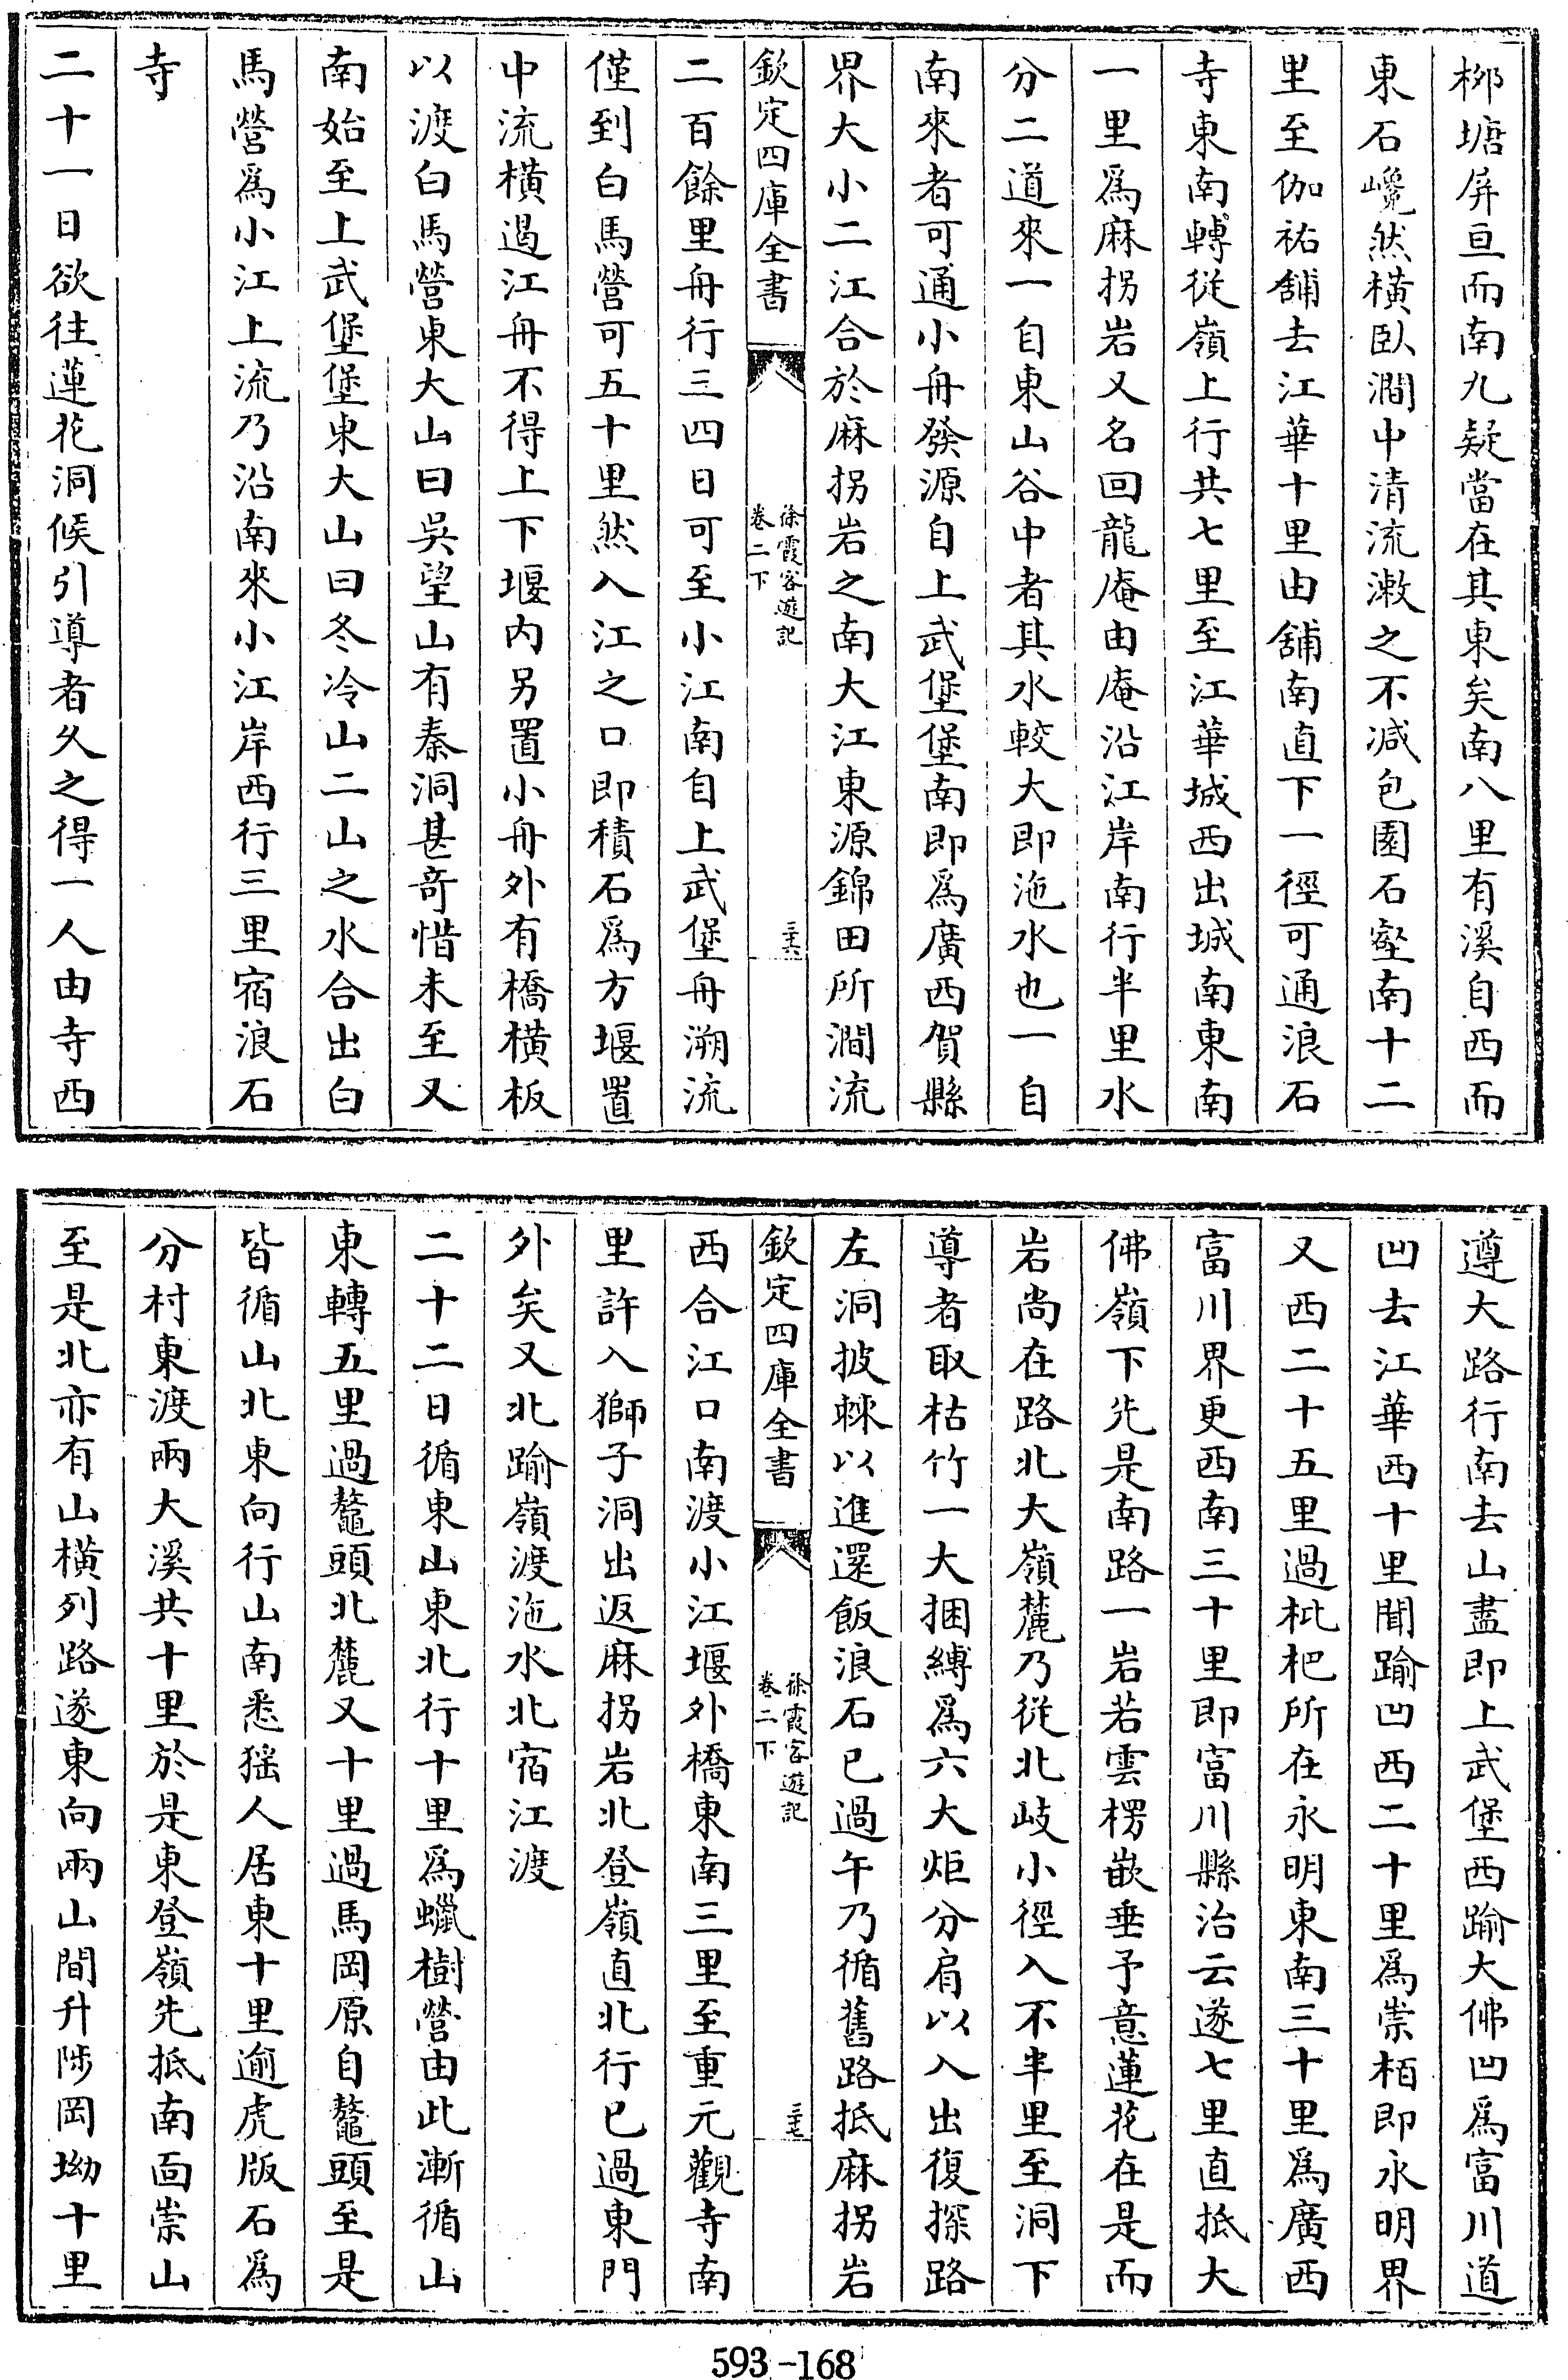 桞塘屏亘而南九疑當在其東矣南八里有溪自西而
東石巉然橫臥澗中清流漱之不減包園石壑南十二
里至伽祐舖去江華十里由舖南直下一徑可通浪石
寺東南轉從嶺上行共七里至江華城西出城南東南
一里爲麻拐岩又名回龍庵由庵沿江岸南行半里水
分二道來一自東山谷中者其水較大即沲水也一自
南來者可通小舟發源自上武堡堡南即爲廣西賀縣
界大小二江合於麻拐岩之南大江東源錦田所澗流
欽定四庫全書
徐霞客遊記
卷二下
三十六
二百餘里舟行三四日可至小江南自上武堡舟溯流
僅到白馬營可五十里然入江之口即積石爲方堰置
中流橫遏江舟不得上下堰內另置小舟外有橋橫板
以渡白馬營東大山曰吳望山有秦洞甚奇惜未至又
南始至上武堡堡東大山曰冬冷山二山之水合出白
馬營爲小江上流乃沿南來小江岸西行三里宿浪石
寺
二十一日欲往蓮花洞候引導者久之得一人由寺西
遵大路行南去山盡即上武堡西踰大佛凹爲富川道
凹去江華西十里聞踰凹西二十里爲崇栢即永明界
又西二十五里過枇杷所在永明東南三十里爲廣西
富川界更西南三十里即富川縣治云遂七里直抵大
佛嶺下先是南路一岩若雲楞嵌垂予意蓮花在是而
岩尚在路北大嶺麓乃從北歧小徑入不半里至洞下
導者取枯竹一大捆縛爲六大炬分肩以入出復探路
左洞披棘以進還飯浪石已過午乃循舊路抵麻拐岩
欽定四庫全書
徐霞客遊記
卷二下
三十七
西合江口南渡小江堰外橋東南三里至重元觀寺南
里許入獅子洞出返麻拐岩北登嶺直北行已過東門
外矣又北踰嶺渡沲水北宿江渡
二十二日循東山東北行十里爲蠟樹營由此漸循山
東轉五里過鼇頭北麓又十里過馬岡原自鼇頭至是
皆循山北東向行山南悉猺人居東十里逾虎版石爲
分村東渡兩大溪共十里於是東登嶺先抵南面崇山
至是北亦有山橫列路遂東向兩山間升陟岡坳十里
593-168